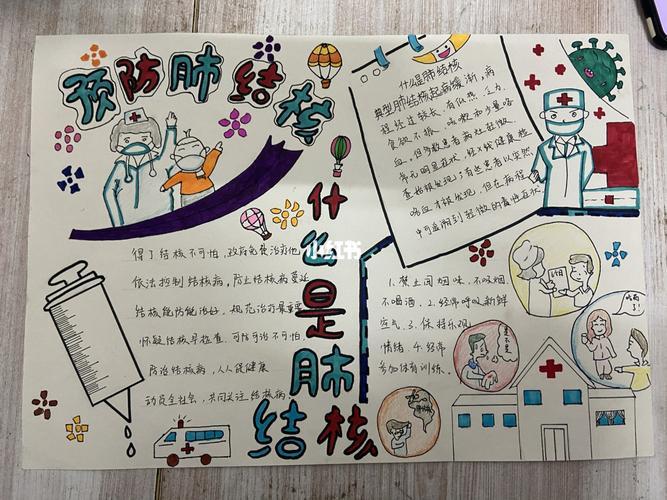 预防肺结核
什么是肺结核
典型肺结核起病缓渐,病
程经过较长,有低热、乏力、
食欲不振、咳嗽和少量咯
血。但多数患者病灶轻微,
常无明显症状,经X线健康检
查始被发现;有些患者以突然
咯血才被发现,但在病程
中可追溯到轻微的毒性症状
什么是肺
结核
小红书
得了结核不可怕,政府免费治疗他
依法控制结核病,防止结核病蔓延
结核能防能治好,规范治疗最重要
怀疑结核早检查,可防可治不可怕.
防治结核病,人人促健康
动员全社会,共同关注结核病.
1.禁止闻烟味、不吸烟、
不喝酒.2.经常呼吸新鲜
空气.3.保持乐观
情绪.4.经常
参加体育训练.